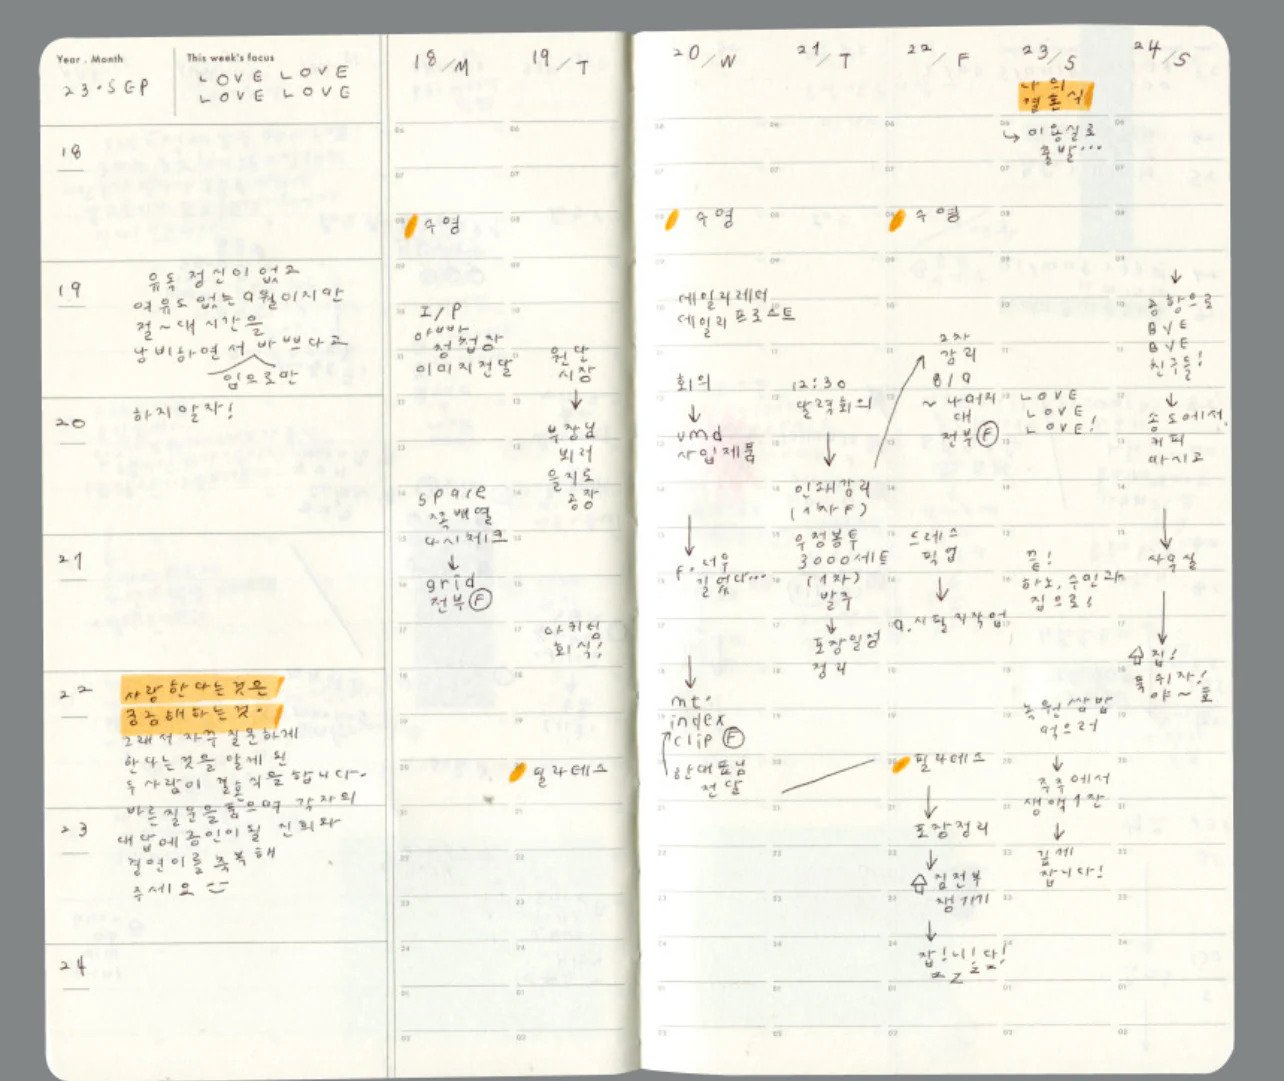 Year . Month
23. SEP
This week's focus
LOVE LOVE
LOVE LOVE
18
19
유독 정신이 없고
여유도 없는 9월이지만
절~대 시간을
낭비하면서 바쁘다고
입으로만
20
하지말자!
21
22
사랑한다는것은
궁금해하는것.
그래서 자주 질문하게
한다는 것을 알게 된
두 사람이 결혼식을 합니다.
23
바른 질문을 품으며 각자의
대답에 증인이 될 진희와
경연이를 축복해
주세요
24
18/M
수영
I/P
아빠
청첩장
이미지전달
space
쪽배열
다시체크
↓
grid
전부 Ⓕ
19/T
원단
시장
↓
부장님
뵈러
을지로
공장
회식!
필라테스
20/W
수영
데일리레터
데일리프로스트
회의
↓
vmd
사입제품
↓
F. 너무
길었다...
↓
mt.
index
clip Ⓕ
한대표님
전달
21/T
12:30
달력회의
↓
인쇄감리
(1차F)
우정봉투
3000세트
(1차)
발주
↓
포장일정
정리
22/F
수영
2차
감리
8/9
~나머지
대
전부 Ⓕ
드레스
픽업
↓
a.시팔지작업
필라테스
↓
포장정리
↓
짐전부
챙기기
↓
잡!니!다!
z z z z
23/S
나의
결혼식
↳ 미용실로
출발...
LOVE
LOVE
LOVE!
끝!
하노, 수민과
집으로!
녹원쌈밥
먹으러
↓
주주에서
생맥1잔
↓
길게
잡니다!
24/S
↓
공항으로
BYE
BYE
친구들!
↓
송도에서
커피
마시고
↓
사무실
↓
집!
푹쉬자!
야~호